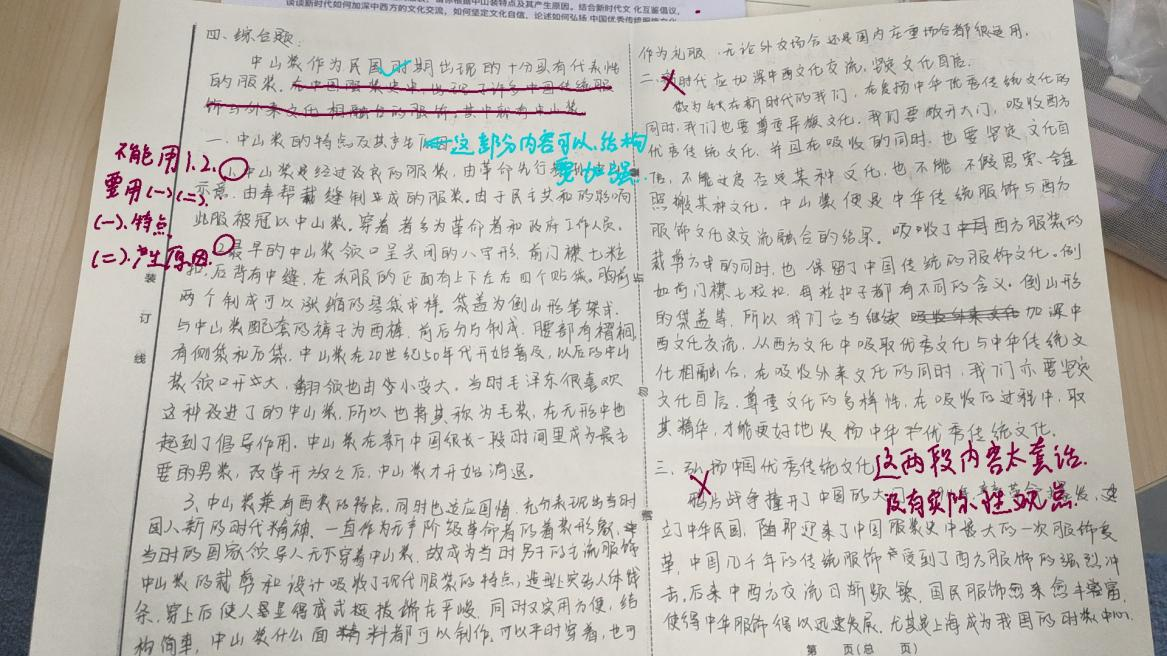 谈谈新时代如何加深中西方的文化交流，如何坚定文化自信，论述如何弘扬 中国优秀传统服饰文化
四、综合题：
中山装作为民国时期出现的十分具有代表性
的服装，在中国服装史中，出现了许多中国传统服
饰与外来文化相融合的服饰，其中就有中山装
一、中山装的特点及其产生原因
这部分内容可以，结构
要加强
不能用1.2.
要用(一)(二).
(一).特点
(二).产生原因
1.中山装是经过改良的服装，由革命先行
示意，由奉帮裁缝制出成的服装。由于民主共和的影响
此服被冠以中山装，穿着者多为革命者和政府工作人员。
2.最早的中山装领口呈关闭的八字形，前门襟七粒
扣，后背有中缝，在衣服的正面有上下左右四个贴袋。胸前
两个制成可以涨缩的琴袋式样。袋盖为倒山形笔架式，
与中山装配套的裤子为西裤，前后分片制成，腰部有褶裥，
有侧袋和后袋，中山装在20世纪50年代开始普及，以后的中山
装领口开大，翻领也由小变大。当时毛泽东很喜欢
这种改进了的中山装，所以也将其称为毛装，在无形中也
起到了倡导作用，中山装在新中国很长一段时间里成为最主
要的男装，改革开放之后，中山装才开始消退。
3、中山装兼有西装的特点，同时也适应国情，充分表现出当时
国人新的时代精神，一直作为无产阶级革命者的着装形象，
当时的国家领导人无不穿着中山装，故成为当时男子的主流服饰
中山装的裁剪和设计吸收了现代服装的特点，造型上突出人体线
条，穿上后使人显得威武挺拔端庄平峻，同时又实用方便，结
构简单，中山装什么面料都可以制作，可以平时穿着，也可
装
订
线
作为礼服，无论外交场合还是国内庄重场合都很适用。
二、新时代应加深中西文化交流，坚定文化自信。
做为生在新时代的我们，在发扬中华优秀传统文化的
同时，我们也要尊重异族文化，我们要敞开大门，吸收西方
优秀传统文化，并且在吸收的同时，也要坚定文化自
信，不能过度否定某种文化，也不能不假思索、全盘
照搬某种文化。中山装便是中华传统服饰与西方
服饰文化交流融合的结果。吸收了西方服装的
裁剪方式的同时，也保留了中国传统的服饰文化。例
如前门襟七粒扣，每粒扣子都有不同的含义。倒山形
的袋盖等，所以我们应当继续吸收外来文化加深中
西文化交流，从西方文化中吸取优秀文化与中华传统文
化相融合，在吸收外来文化的同时，我们亦要坚定
文化自信，尊重文化的多样性，在吸收的过程中，取
其精华，才能更好地发扬中华优秀传统文化。
三、弘扬中国优秀传统文化
这两段内容太套话，
没有实际性观点
鸦片战争撞开了中国的大门
立了中华民国，随即迎来了中国服装史中最大的一次服饰变
革，中国几千年的传统服饰受到了西方服饰的强烈冲
击，后来中西方交流日渐频繁，国民服饰愈来愈丰富，
使得中华服饰得以迅速发展，尤其是上海成为我国的时装中心，
第 页(总 页)